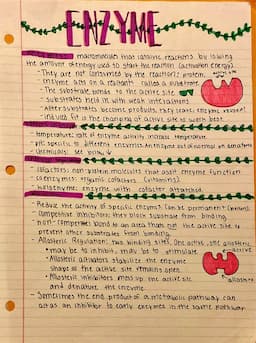 ENZYME
macromolecules that catalyze reactions by lowering
the amount of energy used to start the reaction (activation energy)
- They are not consumed by the reactions; protein.
- enzyme acts on a reactant called a substrate
- The substrate bonds to the active site
- substrates held in with weak interactions
- After substrates become products, they leave; enzyme reused!
- induced fit is the changing of active site to work best.
- temperature: rate of enzyme activity increases temperature
- pH: specific to different enzymes. An enzyme out of normal pH denatures
- chemicals: see below
- cofactors: non-protein molecules that assist enzyme function
(coenzymes: organic cofactors (vitamins)
- holoenzyme: enzyme with cofactor attached
- Reduce the activity of specific enzymes. Can be permanent
- Competitive inhibitors: they block substrate from binding.
- non-competitive: bond to an area thats not the active site to
prevent other substrates from binding.
- Allosteric Regulation: Two binding sites. One active, one allosteric
• may be to inhibit, may be to stimulate
active
• Allosteric activators stabilize the enzyme
shape so the active site remains open
• Allosteric inhibitors mess up the active site
and denature the enzyme
allosteric
- Sometimes the end product of a metabolic pathway can
act as an inhibitor to early enzymes in the same pathway